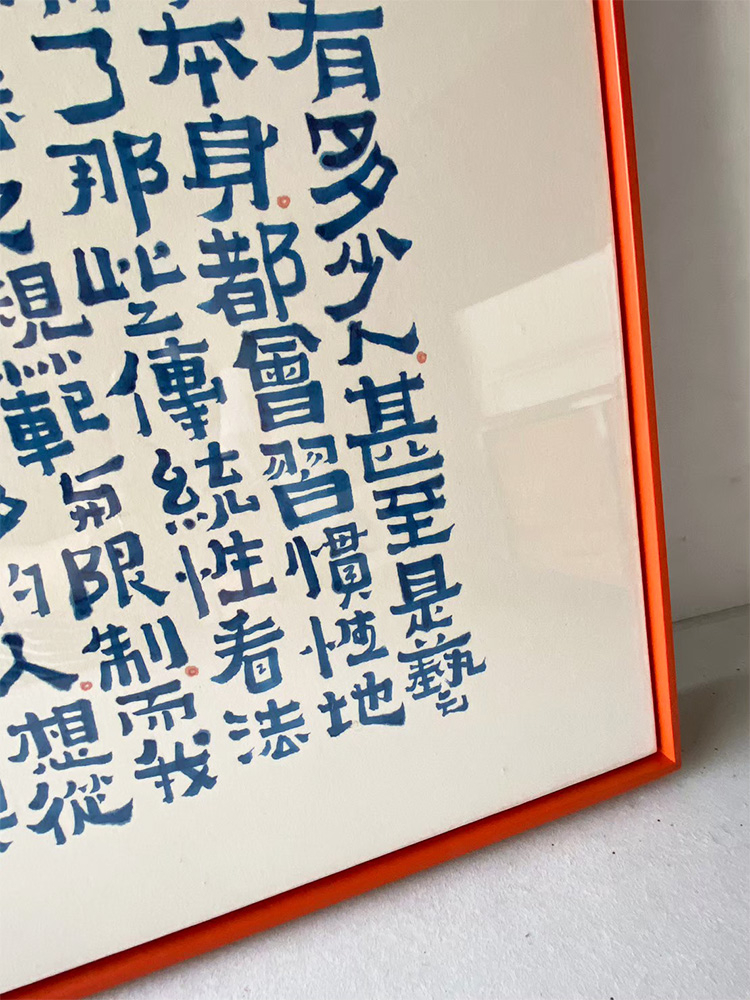 有多少人。甚至是藝
本身。都會習慣性地
了那些傳統性看法
規範無限制。而我
的人。想從